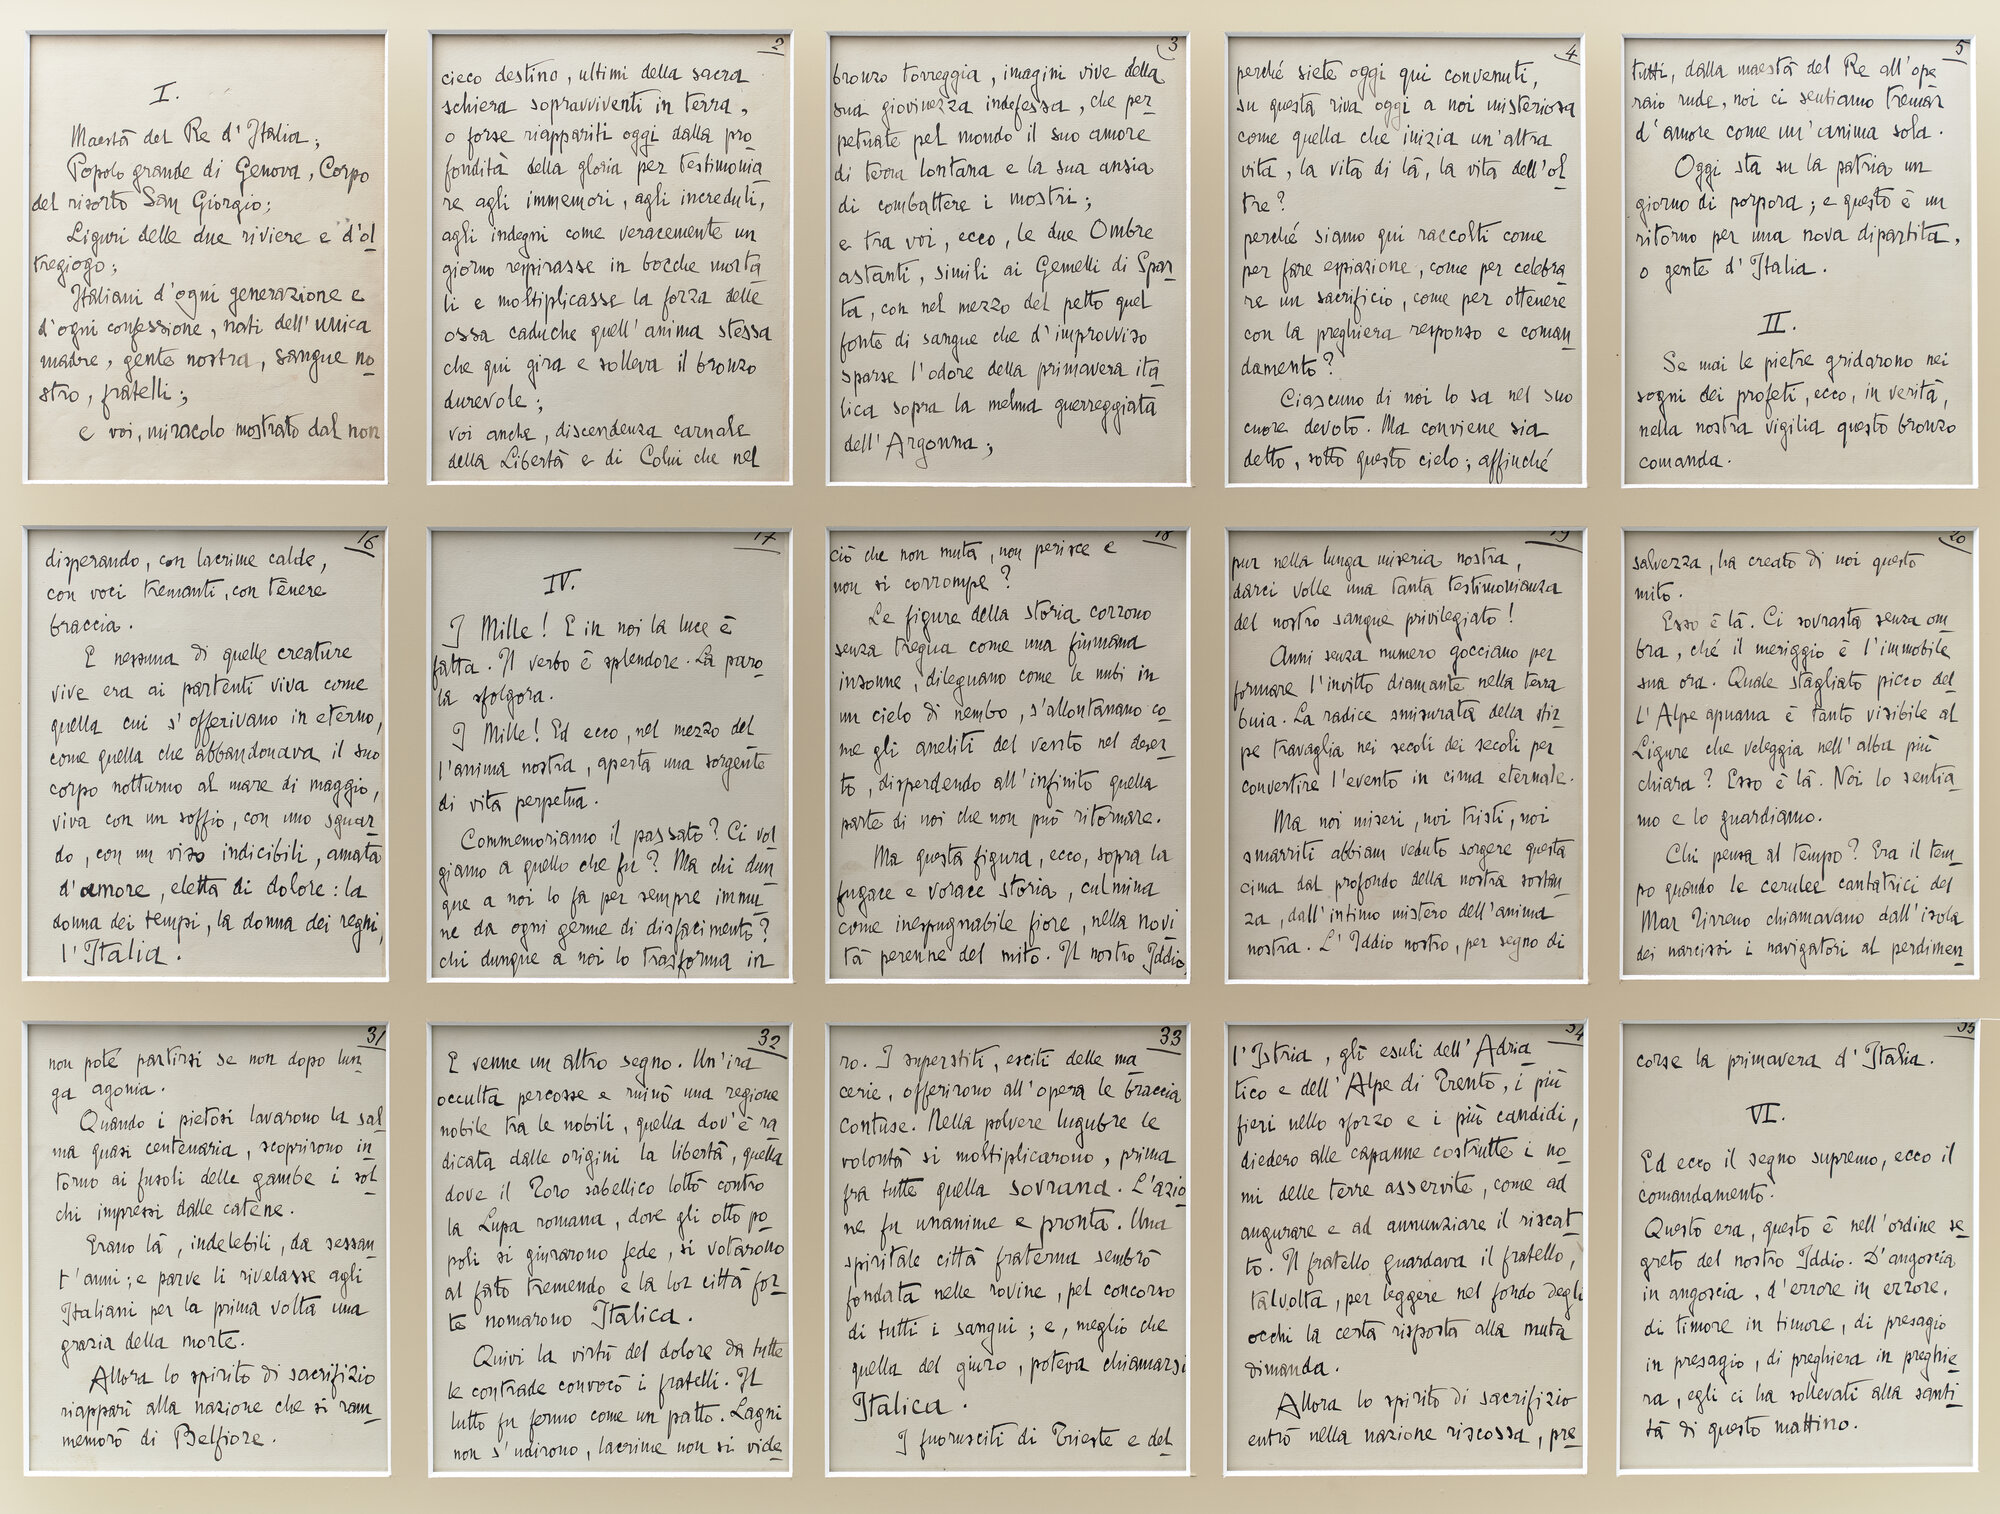 I.
Maestà del Re d'Italia;
Popolo grande di Genova, Corpo
del risorto San Giorgio;
Liguri delle due riviere e d'ol
tregiogo;
Italiani d'ogni generazione e
d'ogni confessione, nati dell'unica
madre, gente nostra, sangue no
stro, fratelli;
e voi, miracolo mostrato dal non
2
cieco destino, ultimi della sacra
schiera sopravviventi in terra,
o forse riappariti oggi dalla pro
fondità della gloria per testimonia
re agli immemori, agli increduli,
agli indegni come veracemente un
giorno respirasse in bocche morta
li e moltiplicasse la forza delle
ossa caduche quell'anima stessa
che qui gira e solleva il bronzo
durevole;
voi anche, discendenza carnale
della Libertà e di Colui che nel
3
bronzo torreggia, imagini vive della
sua giovinezza indefessa, che per
petuate pel mondo il suo amore
di terra lontana e la sua ansia
di combattere i mostri;
e tra voi, ecco, le due Ombre
astanti, simili ai Gemelli di Spar
ta, con nel mezzo del petto quel
fonte di sangue che d'improvviso
sparse l'odore della primavera ita
lica sopra la melma guerreggiata
dell'Argonna;
4
perché siete oggi qui convenuti,
su questa riva oggi a noi misteriosa
come quella che inizia un'altra
vita, la vita di là, la vita dell'ol
tre?
perché siamo qui raccolti come
per fare espiazione, come per celebra
re un sacrificio, come per ottenere
con la preghiera responso e coman
damento?
Ciascuno di noi lo sa nel suo
cuore devoto. Ma conviene sia
detto, sotto questo cielo; affinché
5
tutti, dalla maestà del Re all'ope
raio rude, noi ci sentiamo tremar
d'amore come un'anima sola.
Oggi sta su la patria un
giorno di porpora; e questo è un
ritorno per una nova dipartita,
o gente d'Italia.
II.
Se mai le pietre gridarono nei
sogni dei profeti, ecco, in verità,
nella nostra vigilia questo bronzo
comanda.
16
disperando, con lacrime calde,
con voci tremanti, con tènere
braccia.
E nessuna di quelle creature
vive era ai partenti viva come
quella cui s'offerivano in eterno,
come quella che abbandonava il suo
corpo notturno al mare di maggio,
viva con un soffio, con uno sguar
do, con un viso indicibili, amata
d'amore, eletta di dolore: la
donna dei tempi, la donna dei reghi,
l'Italia.
17
IV.
I Mille! E in noi la luce è
fatta. Il verbo è splendore. La paro
la sfolgora.
I Mille! Ed ecco, nel mezzo del
l'anima nostra, aperta una sorgente
di vita perpetua.
Commemoriamo il passato? Ci vol
giamo a quello che fu? Ma chi dun
que a noi lo fa per sempre immu
ne da ogni germe di disfacimento?
chi dunque a noi lo trasforma in
18
ciò che non muta, non perisce e
non si corrompe?
Le figure della storia corrono
senza tregua come una fiumana
insonne, dileguano come le nubi in
un cielo di nembo, s'allontanano co
me gli aneliti del vento nel deser
to, disperdendo all'infinito quella
parte di noi che non può ritornare.
Ma questa figura, ecco, sopra la
fugace e vorace storia, culmina
come inespugnabile fiore, nella novi
tà perenne del mito. Il nostro Iddio,
19
pur nella lunga miseria nostra,
darci volle una tanta testimonianza
del nostro sangue privilegiato!
Anni senza numero gocciano per
formare l'invitto diamante nella terra
buia. La radice smisurata della stir
pe travaglia nei secoli dei secoli per
convertire l'evento in cima eternale.
Ma noi miseri, noi tristi, noi
smarriti abbiam veduto sorgere questa
cima dal profondo della nostra sostan
za, dall'intimo mistero dell'anima
nostra. L'Iddio nostro, per segno di
20
salvezza, ha creato di noi questo
mito.
Esso è là. Ci sovrasta senza om
bra, ché il meriggio è l'immobile
sua ora. Quale stagliato picco del
l'Alpe apuana è tanto visibile al
Ligure che veleggia nell'alba più
chiara? Esso è là. Noi lo sentia
mo e lo guardiamo.
Chi pensa al tempo? Era il tem
po quando le cerulee cantatrici del
Mar Tirreno chiamavano dall'isola
dei narcissi i navigatori al perdimen
31
non poté partirsi se non dopo lun
ga agonia.
Quando i pietosi lavarono la sal
ma quasi centenaria, scoprirono in
torno ai fusoli delle gambe i sol
chi impressi dalle catene.
Erano là, indelebili, da sessan
t'anni; e parve li rivelasse agli
Italiani per la prima volta una
grazia della morte.
Allora lo spirito di sacrifizio
riapparì alla nazione che si ram
memorò di Belfiore.
32
E venne un altro segno. Un'ira
occulta percosse e ruinò una regione
nobile tra le nobili, quella dov'è ra
dicata dalle origini la libertà, quella
dove il Toro sabellico lottò contro
la Lupa romana, dove gli otto po
poli si giurarono fede, si votarono
al fato tremendo e la lor città for
te nomarono Italica.
Quivi la virtù del dolore da tutte
le contrade convocò i fratelli. Il
lutto fu fermo come un patto. Lagni
non s'udirono, lacrime non si vide
33
ro. I superstiti, esciti delle ma
cerie, offerirono all'opera le braccia
contuse. Nella polvere lugubre le
volontà si moltiplicarono, prima
fra tutte quella sovrana. L'azio
ne fu unanime e pronta. Una
spiritale città fraterna sembrò
fondata nelle rovine, pel concorso
di tutti i sangui; e, meglio che
quella del giuro, poteva chiamarsi
Italica.
I fuorusciti di Trieste e del
34
l'Istria, gli esuli dell'Adria
tico e dell'Alpe di Trento, i più
fieri nello sforzo e i più candidi,
diedero alle capanne costrutte i no
mi delle terre asservite, come ad
augurare e ad annunziare il riscat
to. Il fratello guardava il fratello,
talvolta, per leggere nel fondo degli
occhi la certa risposta alla muta
dimanda.
Allora lo spirito di sacrifizio
entrò nella nazione riscossa, pre
35
corse la primavera d'Italia.
VI.
Ed ecco il segno supremo, ecco il
comandamento.
Questo era, questo è nell'ordine se
greto del nostro Iddio. D'angoscia
in angoscia, d'errore in errore,
di timore in timore, di presagio
in presagio, di preghiera in preghie
ra, egli ci ha sollevati alla santi
tà di questo mattino.